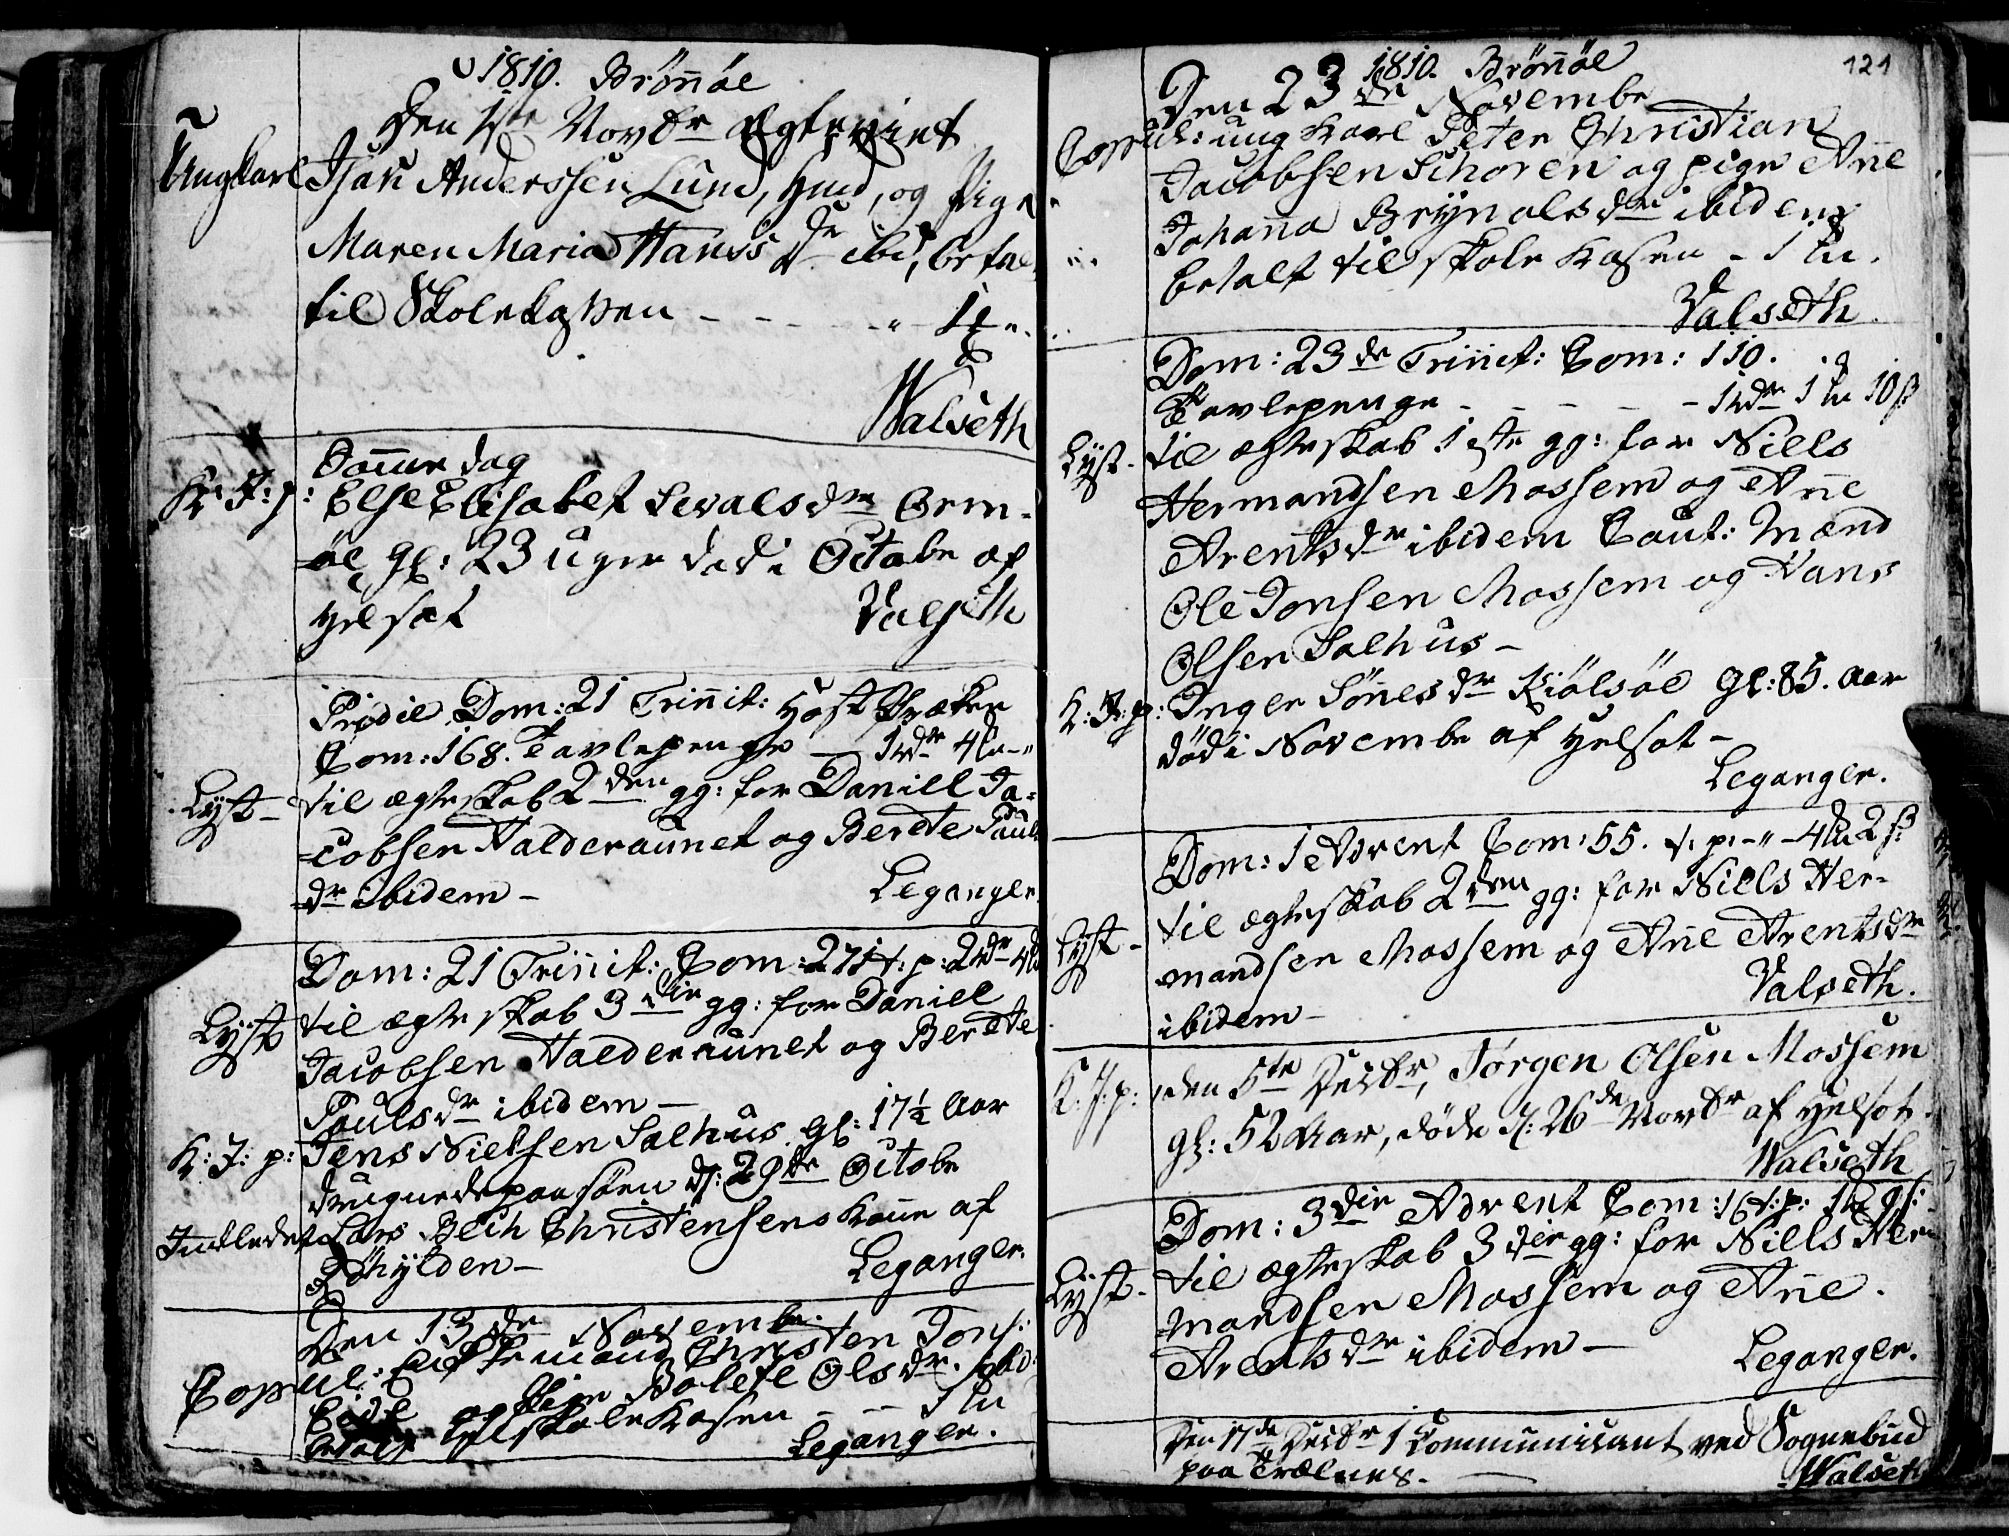 1810. Brönöe
Den 1ste Novbr Egteviet
Ungkarl Isah Anderssen Lund, Hmd, og Pige
Maren Maria Hanss Dr ibid, betal
til Skolekassen - - - - 1
Walseth
K: J: p: Else Elisabet Sivalsdr Orm-
=öe gl: 23 uger död i Octobr af
Helsot Valseth
Prödie Dom: 21 Trinit: Höst
Com: 168. Tavlepenge — 1 4
Lyst - til ægteskab 2den gg: for Daniel Ja-
=cobsen Halderaunet og Berete Pauls
=dr ibidem - Leganger
Dom: 21 Trinit: Com: 271 t: p: 2 4
Lyst til ægteskab 3die gg: for Daniel
Jacobsen Halderaunet og Berete
Paulsdr ibidem —
K: J: p: Jens Nielsen Salhus gl: 17½ Aar
druknede paa söen d: 29de Octobr
Indledet Lars Bech Christensens Kone af
Röhylden - Leganger.
Den 13de Novembr.
Copul: Enkemand Christen Jons:
og Pige Bolete Olsdr. ibd:
betalt til skole Kasen - - 1
Leganger.
121
1810. Brönöe
Den 23de Novembr
Copul: ung Karl Peter Christian
Jacobsen Schoren og pige Ane
Johanna Brynalsdr ibidem
betalt til skole Kasen - 1
Valseth.
Dom: 23de Trinit: Com: 110.
Tavlepenge - - - - - 1 1 10 ß
Lyst - til ægteskab 1ste gg: for Niels
Hermandsen Mossem og Ane
Arentsdr ibidem Caut: Mænd
Ole Jonsen Mossem og Hans
Olsen Salhus -
K: J: p: Inger Sönesdr Kiölsöe gl: 85. Aar
död i Novembr af Helsot -
Leganger.
Dom: 1 Advent Com: 55. t: p: - " - 4 2 ß:
Lyst - til ægteskab 2den gg: for Niels Her-
mandsen Mossem og Ane Arentsdr
ibidem - Valseth.
K: J: p: den 5te Decbr, Jörgen Olsen Mossem
gl: 52 Aar, döde d: 26de Novbr af Helsot.
Walseth
Dom: 3die Advent Com: 16 t: p: 1
Lyst - til ægteskab 3die gg: for Niels Her-
=mandsen Mossem og Ane.
Arentsdr ibidem — Leganger.
Den 17de Decbr 1 Communicant ved Sognebud
paa Trælnes. — Walseth